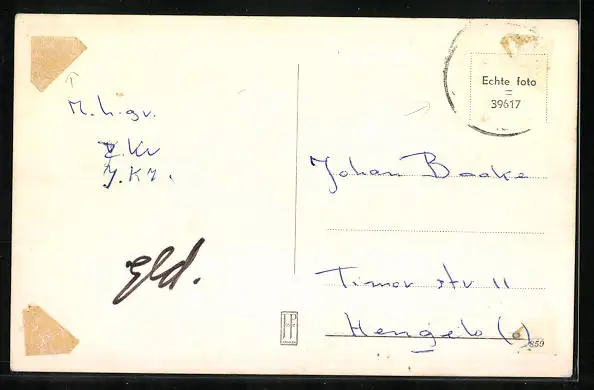 M. h. gr.
J. Kr.
gld.
Echte foto
=
39617
Johan Baake
Timor str 11
Hengelo (o)
859